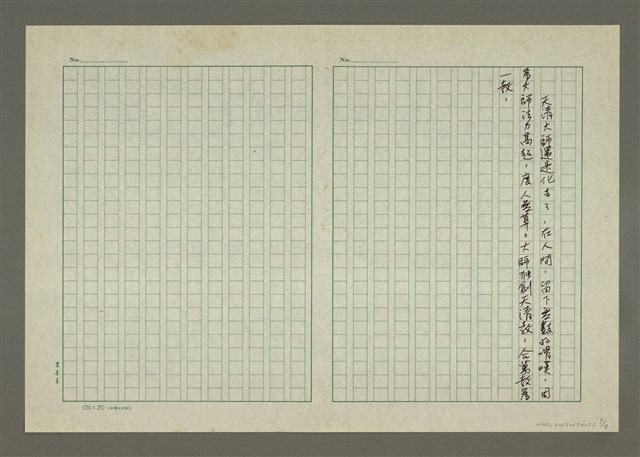 No.
天清大師還是化去了，在人間，留下無數的嘆，因
為大師法力高超，度人無算。大師獨創天清教，合萬教為
一教，
No.
(24×25)